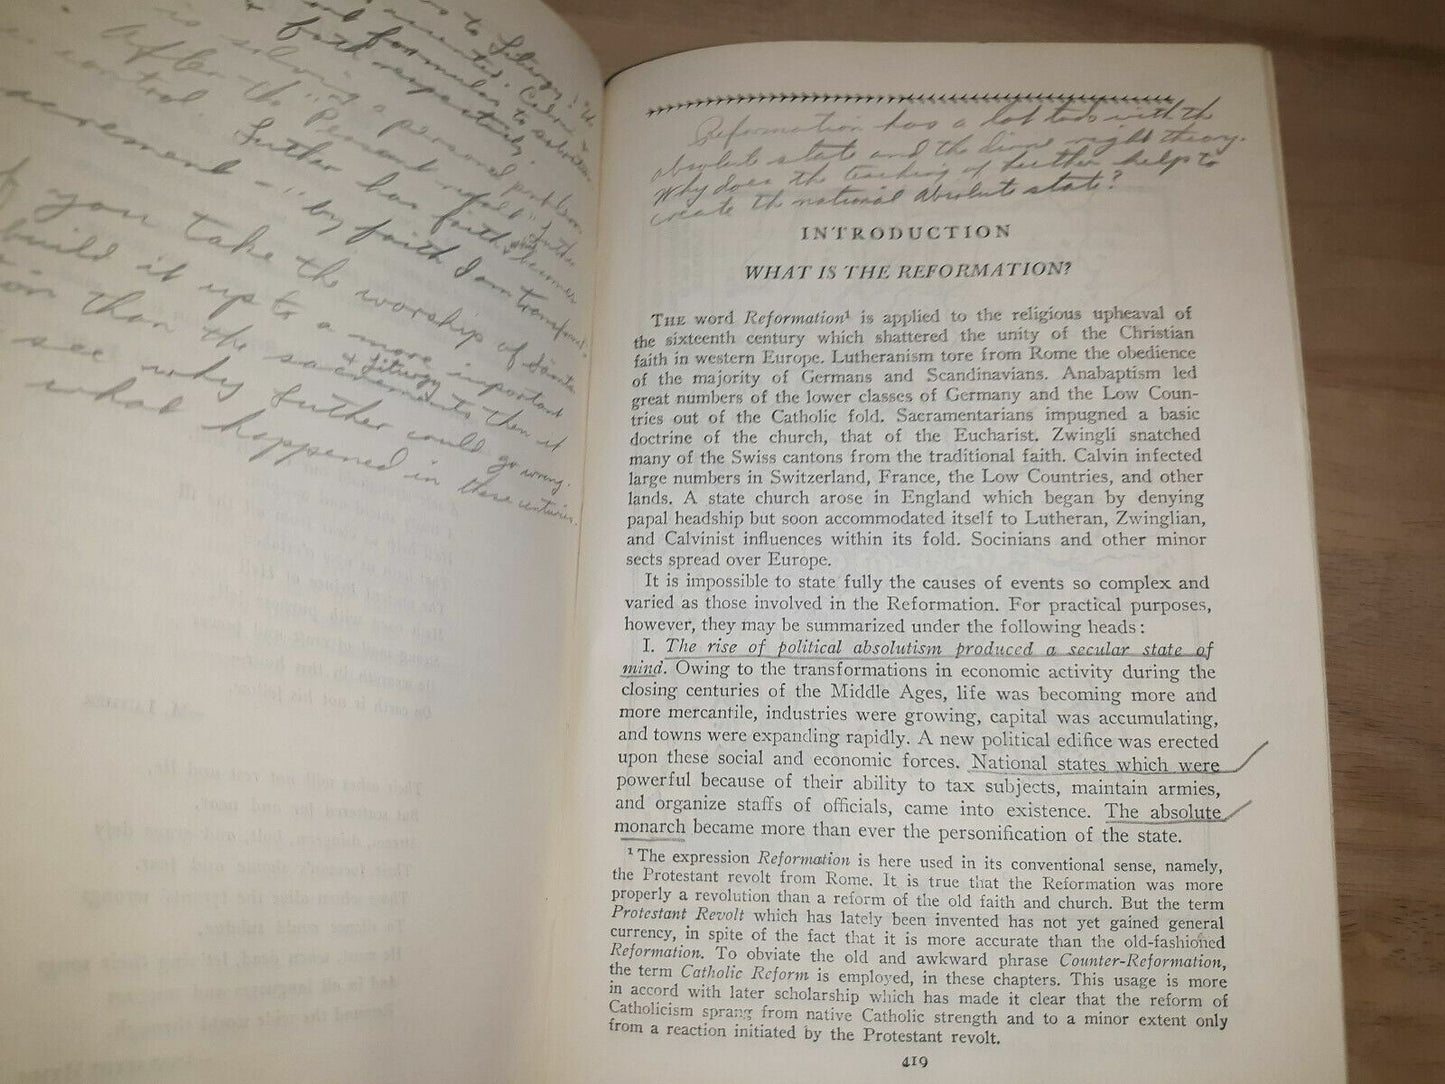 to Liturgy
Calvin
and formulas to salvation
faith respectively.
is solving a personal problem.
After the "Peasant revolt" Luther
control. Luther has faith & becomes
sacrament - "by faith I am transformed.
you take the worship of Saints
build it up to a more important
than the sacraments then it
& Liturgy
see why Luther could go wrong.
what happened in these centuries.
Reformation has a lot to do with the
absolute state and the divine right theory.
Why does the teaching of Luther help to
create the national absolute state?
INTRODUCTION
WHAT IS THE REFORMATION?
THE word Reformation¹ is applied to the religious upheaval of
the sixteenth century which shattered the unity of the Christian
faith in western Europe. Lutheranism tore from Rome the obedience
of the majority of Germans and Scandinavians. Anabaptism led
great numbers of the lower classes of Germany and the Low Coun-
tries out of the Catholic fold. Sacramentarians impugned a basic
doctrine of the church, that of the Eucharist. Zwingli snatched
many of the Swiss cantons from the traditional faith. Calvin infected
large numbers in Switzerland, France, the Low Countries, and other
lands. A state church arose in England which began by denying
papal headship but soon accommodated itself to Lutheran, Zwinglian,
and Calvinist influences within its fold. Socinians and other minor
sects spread over Europe.
It is impossible to state fully the causes of events so complex and
varied as those involved in the Reformation. For practical purposes,
however, they may be summarized under the following heads:
I. The rise of political absolutism produced a secular state of
mind. Owing to the transformations in economic activity during the
closing centuries of the Middle Ages, life was becoming more and
more mercantile, industries were growing, capital was accumulating,
and towns were expanding rapidly. A new political edifice was erected
upon these social and economic forces. National states which were
powerful because of their ability to tax subjects, maintain armies,
and organize staffs of officials, came into existence. The absolute
monarch became more than ever the personification of the state.
¹ The expression Reformation is here used in its conventional sense, namely,
the Protestant revolt from Rome. It is true that the Reformation was more
properly a revolution than a reform of the old faith and church. But the term
Protestant Revolt which has lately been invented has not yet gained general
currency, in spite of the fact that it is more accurate than the old-fashioned
Reformation. To obviate the old and awkward phrase Counter-Reformation,
the term Catholic Reform is employed, in these chapters. This usage is more
in accord with later scholarship which has made it clear that the reform of
Catholicism sprang from native Catholic strength and to a minor extent only
from a reaction initiated by the Protestant revolt.
419